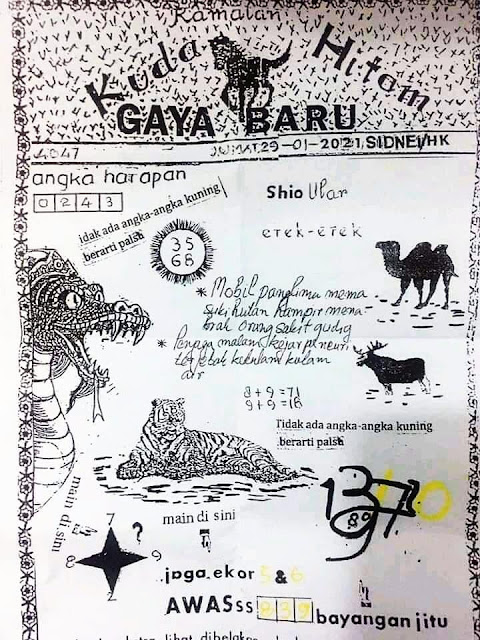 Ramalan
Kuda Hitam
GAYA BARU
4047
JUMAT, 29-01-2021, SIDNEI/HK
angka harapan
0 2 4 3
idak ada angka-angka kuning
berarti palsu
35
68
Shio Ular
erek-erek
* Mobil panglima mema
suki hutan hampir mena-
brak orang sakit gudig
* Penaga malam kejar pencuri
kolam
air
8+9=71
9+9=16
Tidak ada angka-angka kuning
berarti palsu
main di sini
main di sini
7
8
9
2
?
jaga ekor 5 & 6
AWASss 8 3 9 bayangan jitu